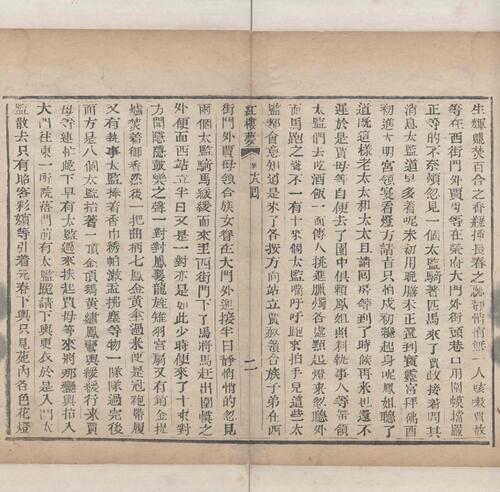 生輝鑪焚百合之香瓶插長春之蕊靜悄悄無一人咳嗽賈赦
等在西街門外賈母等在榮府大門外街頭巷口用圍幙擋嚴
正等的不奈煩忽見一個太監騎著匹馬來了賈政接着問其
消息太監道早多着呢未初用晚膳未正還到寶靈宮拜佛酉
初進大明宮領宴看燈方請旨只怕戌初纔起身呢鳳姐聽了
道既這樣老太太和太太且請回房等到了時候再來也還不
遲於是賈母等自便去了園中俱賴鳳姐照料執事人等帶領
太監們去吃酒飯一面傳人挑進臘燭各處點起燈來忽聽外
面馬跑之聲不一有十來個太監喘吁吁跑來拍手兒這些太
監都會意知道是來了各按方向站立賈赦領合族子弟在西
紅樓夢 二
街門外賈母領合族女眷在大門外迎接半日靜悄悄的忽見
兩個太監騎馬緩緩而來至西街門下了馬將馬赶出圍幙之
外便面西站立半日又是一對亦是如此少時便來了十來對
方聞隱隱鼓樂之聲一對對鳳翣龍旌雉羽宮扇又有銷金提
爐焚着御香然後一把曲柄七鳳金黃傘過來便是冠袍帶履
又有執事太監捧着香巾繡帕漱盂拂塵等物一隊隊過完後
面方是八個太監抬著一頂金頂鵝黃繡鳳鑾輿緩緩行來賈
母等連忙跪下早有太監過來扶起賈母等來將那鑾輿抬入
大門往東一所院落門前有太監跪請下輿更衣於是入門太
監散去只有昭容彩嬪等引着元春下輿只見苑內各色花燈